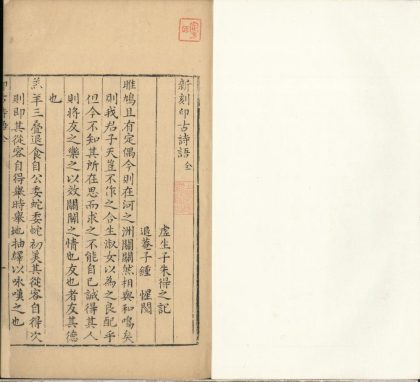 新刻印古詩語 全
虛生子朱得之記
退菴子鍾惺閱
雎鳩且有定偶今則在河之洲關關然相與和鳴矣
則我君子天豈不作之合生淑女以為之良配乎
但今不知其所在思而求之不能自已誠得其人
則將友之樂之以效關關之情也友也者友其德
也
羔羊三疊退食自公委蛇委蛇初美其從容自得次
則即其從容自得舉時舉地抽繹以咏嘆之也